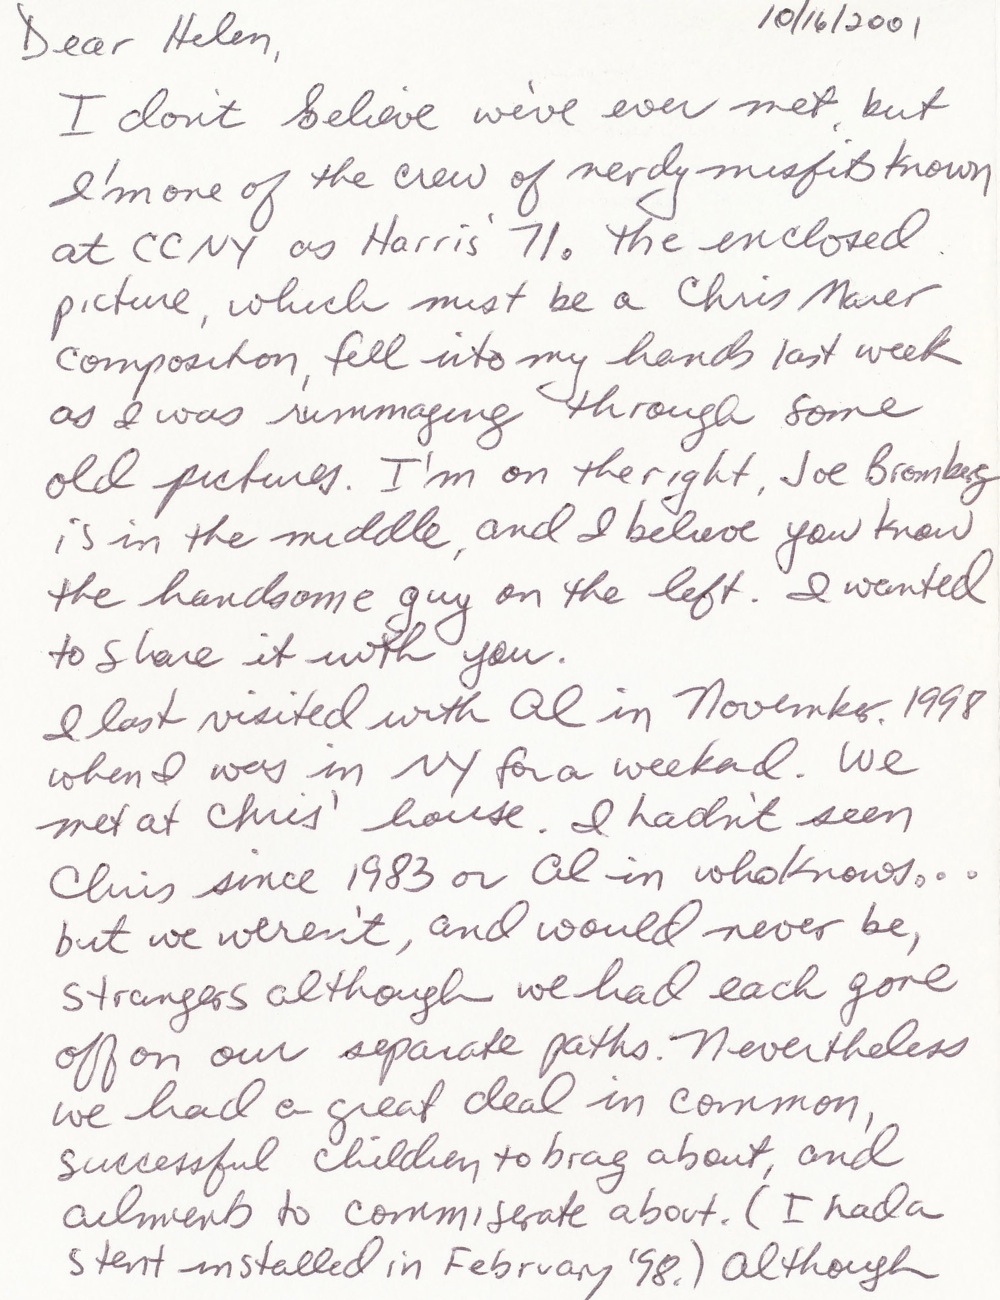 10/16/2001
Dear Helen,
I don't believe we've ever met, but
I'm one of the crew of nerdy misfits known
at CCNY as Harris' 71. The enclosed
picture, which must be a Chris
composition, fell into my hands last week
as I was rummaging through some
old pictures. I'm on the right, Joe Bromberg
is in the middle, and I believe you know
the handsome guy on the left. I wanted
to share it with you.
I last visited with Al in November. 1998
when I was in NY for a weekend. We
met at Chris' house. I hadn't seen
Chris since 1983 or Al in whoknows...
but we weren't, and would never be,
strangers although we had each gone
off on our separate paths. Nevertheless
we had a great deal in common,
successful children to brag about, and
ailments to commiserate about. (I had a
stent installed in February '98.) Although